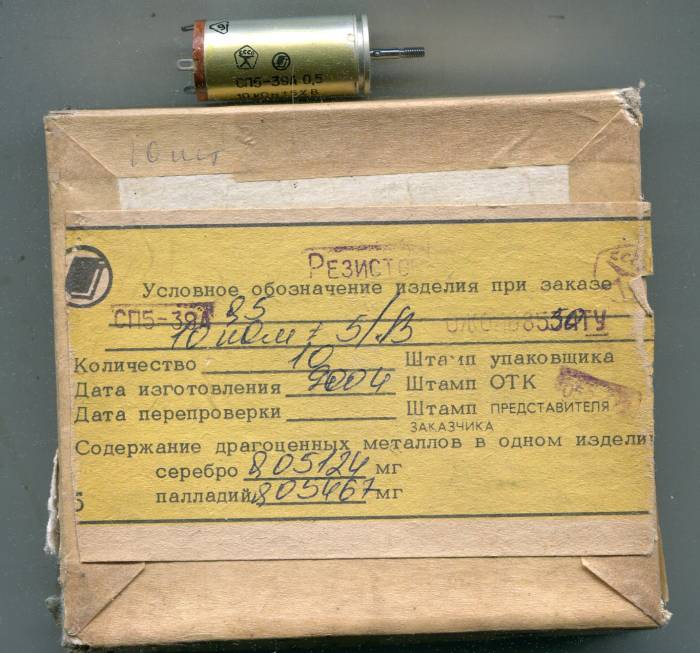 СССР
СП5-39А 0,5
10 кОм ±5% В
10 шт
РЕЗИСТО
Условное обозначение изделия при заказе
СП5-39А 0,5
10 кОм ± 5% В ТУ
Количество 10 Штамп упаковщика
Дата изготовления 2004 Штамп ОТК
Дата перепроверки Штамп ПРЕДСТАВИТЕЛЯ
ЗАКАЗЧИКА
Содержание драгоценных металлов в одном издели
серебро 8,05124 мг
палладий 8,05467 мг
5